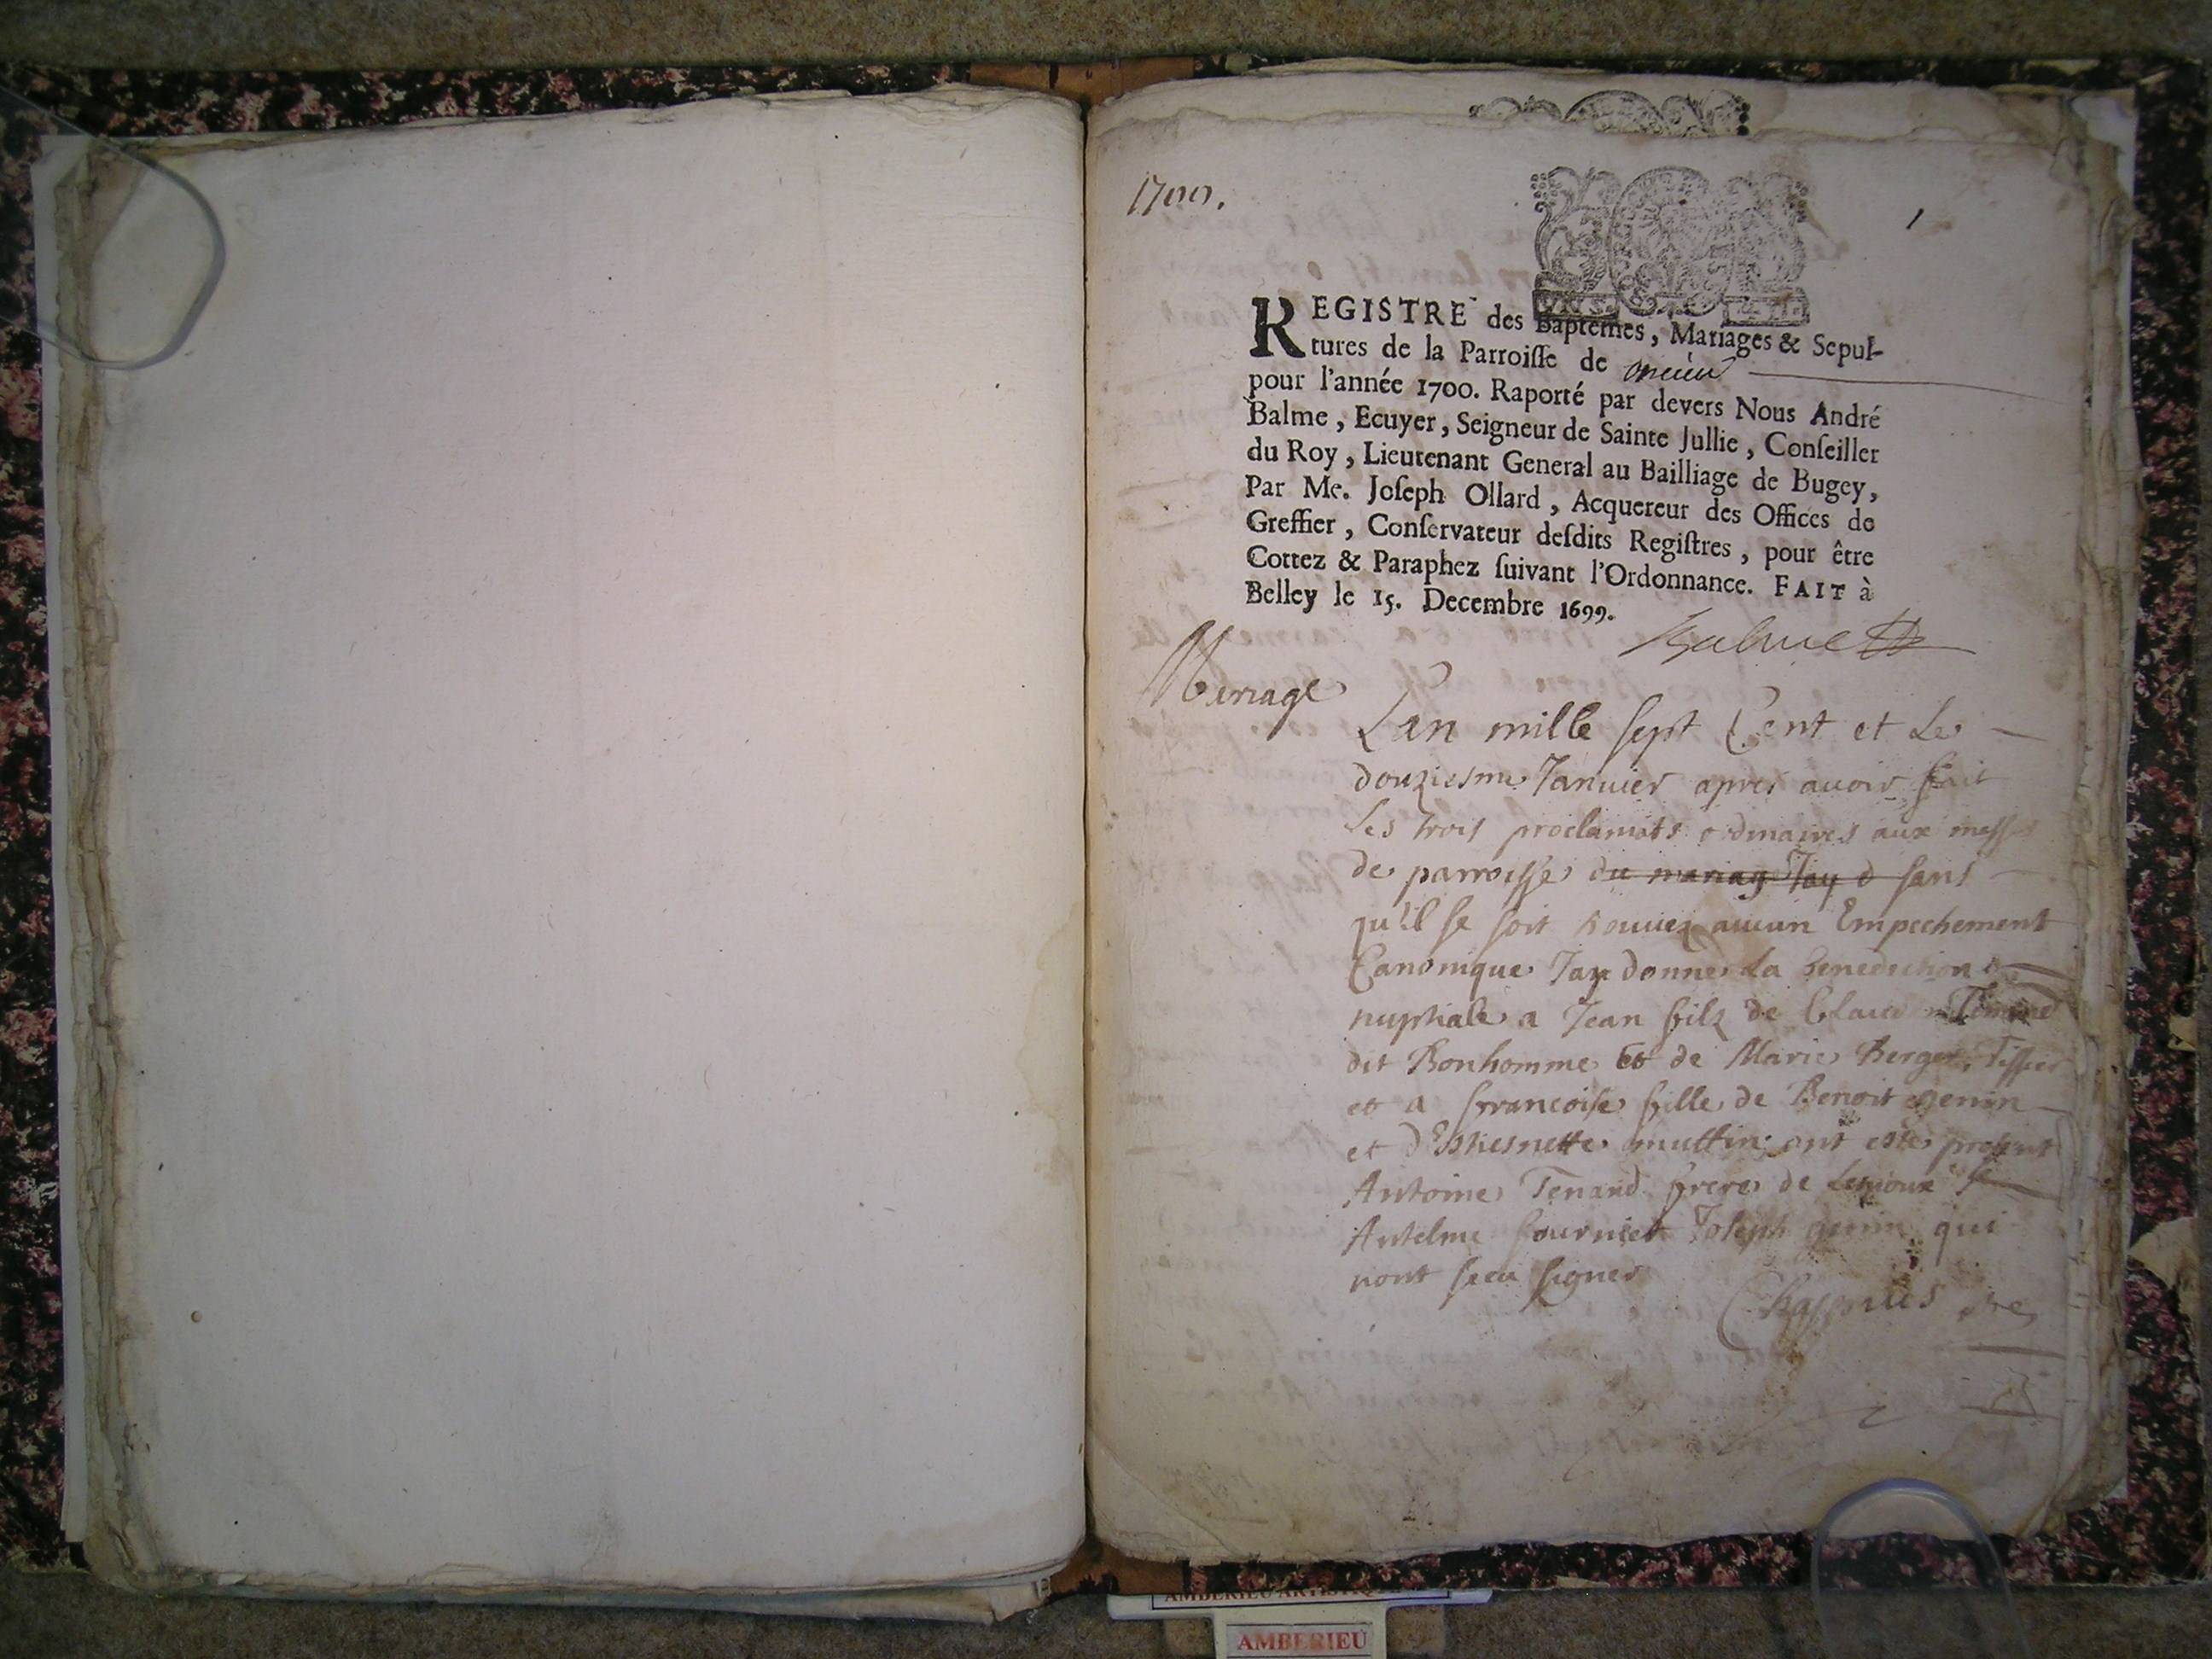 1700.
1
REGISTRE des Baptêmes, Mariages & Sepul-
tures de la Parroisse de
pour l'année 1700. Raporté par devers Nous André
Balme, Ecuyer, Seigneur de Sainte Jullie, Conseiller
du Roy, Lieutenant General au Bailliage de Bugey,
Par Me. Joseph Ollard, Acquereur des Offices de
Greffier, Conservateur desdits Registres, pour être
Cottez & Paraphez suivant l'Ordonnance. FAIT à
Belley le 15. Decembre 1699.
Balme
Mariage
Lan mille sept Cent et Le
douziesme Januier apres auoir fait
Les trois proclamats ordinaires aux messes
de parroisse du mariag Jay d sans
qu'il se soit trouuez aucun Empechement
Canonique Jay donne La benediction
nuptiale a Jean filz de Claude Tenand
dit Bonhomme et de Marie Berger, Tissier
et a francoise fille de Benoit genin
et d'Esthiesnette muttin ont este present
Antoine Tenand frere de Lepoux
Antelme fournier Joseph genin qui
nont sceu signer
AMBERIEU